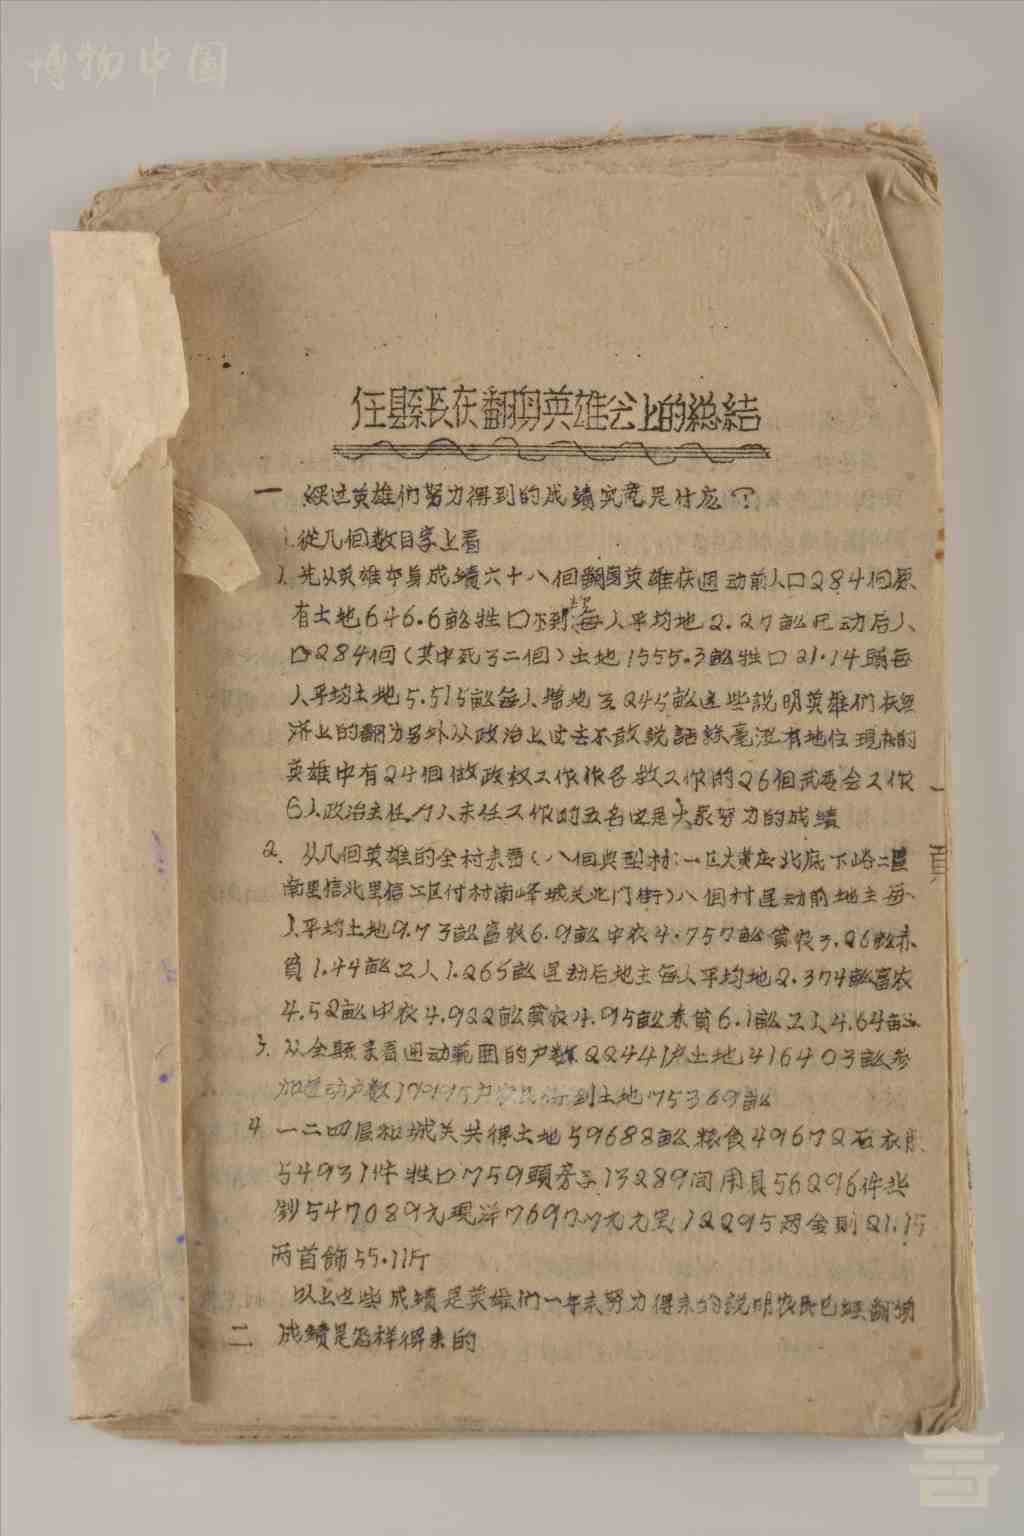 博物中国
任縣長在翻身英雄会上的總結
一 经过英雄們努力得到的成績究竟是什庅？
1.從几個数目字上看
1.先从英雄本身成績六十八個翻身英雄在运动前人口284個原
有土地646.6畝牲口不到 每人平均地2.27畝运动后人
口284個（其中死了二個）土地1555.3畝牲口21.14頭每
人平均土地5.515畝每人增地 245畝这些説明英雄們在经
济上的翻身另外从政治上过去不敢説話絲毫没有地位現在的
英雄中有24個做政权工作作各救工作的26個武委会工作
6人政治主任 人未任工作的五名也是大家努力的成績
2.从几個英雄的全村来看（八個典型村：一区大黄庄北底下峪二區
南里信北里信 区付村南峰城关北门街）八個村运动前地主每
人平均土地9.73畝富农6.9畝中农4.757畝貧农3.26畝赤
貧1.44畝工人1.265畝运动后地主每人平均地2.374畝富农
4.52畝中农4.922畝貧农4.95畝赤貧6.1畝工人4.64畝
3.从全縣来看运动範囲的户数22441户土地416403畝参
加运动户数 户农民得到土地75369畝
4.一二四区和城关共得土地59688畝粮食49672石衣服
54931件牲口759頭房子13289间用具56296件 
鈔547089元現洋 元元宝12295两金則21.15
两首飾55.11斤
以上这些成績是英雄们一年来努力得来的説明农民已经翻身
二 成績是怎样得来的
一
頁